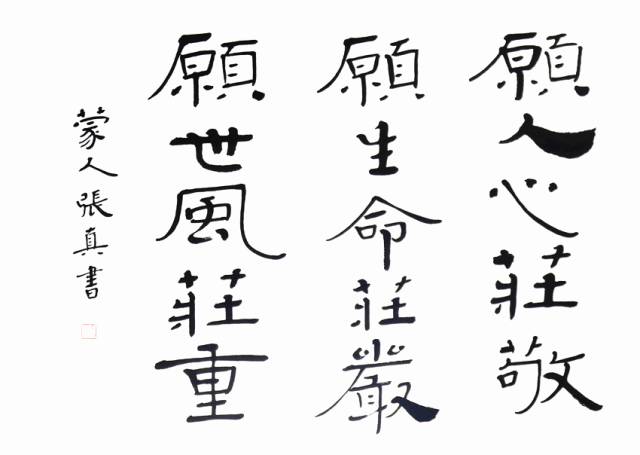 願人心莊敬
願生命莊嚴
願世風莊重
蒙人張真書